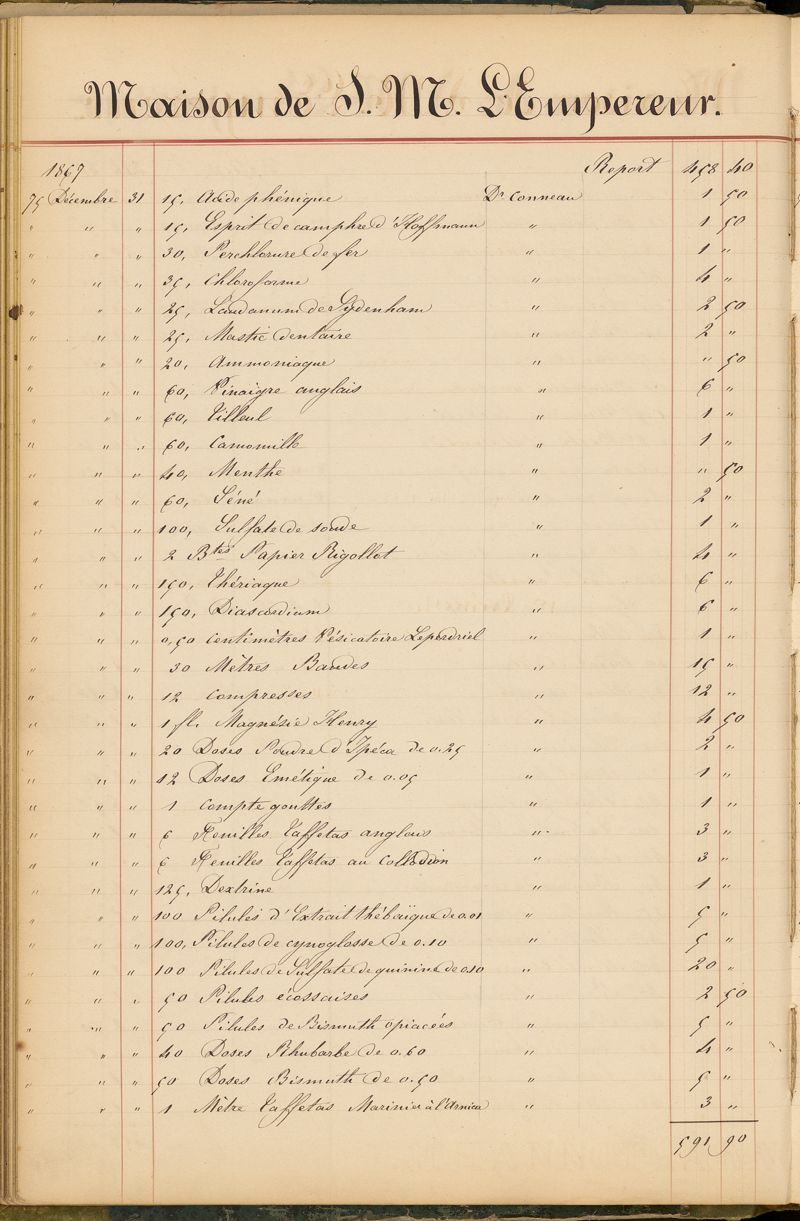 Maison de S. M. L'Empereur.
1867 Report 458 40
75 Décembre 31 15, Acide phénique Dr Conneau 1 50
" " " 15, Esprit de camphre d'Hoffmann " 1 50
" " " 30, Perchlorure de fer " 1 "
" " " 35, Chloroforme " 4 "
" " " 25, Laudanum de Sydenham " 2 50
" " " 25, Mastic dentaire " 2 "
" " " 20, Ammoniaque " " 50
" " " 60, Vinaigre anglais " 6 "
" " " 60, Tilleul " 1 "
" " " 60, Camomille " 1 "
" " " 40, Menthe " " 50
" " " 60, Séné " 2 "
" " " 100, Sulfate de soude " 1 "
" " " 2 Btes Papier Rigollot " 4 "
" " " 150, Thériaque " 6 "
" " " 150, Diascordium " 6 "
" " " 0,50 centimètres Vésicatoire Leperdriel " 1 "
" " " 30 Mètres Bandes " 15 "
" " " 12 compresses " 12 "
" " " 1 fl. Magnésie Henry " 4 50
" " " 20 Doses Poudre d'Ipéca de 0.25 " 2 "
" " " 12 Doses Emétique de 0.05 " 1 "
" " " 1 compte gouttes " 1 "
" " " 6 Feuilles Taffetas anglais " 3 "
" " " 6 Feuilles Taffetas au Collodion " 3 "
" " " 125, Dextrine " 1 "
" " " 100 Pilules d'Extrait thébaïque de 0.01 " 5 "
" " " 100, Pilules de cynoglosse de 0.10 " 5 "
" " " 100 Pilules de Sulfate de quinine de 0.10 " 20 "
" " " 50 Pilules écossaises " 2 50
" " " 50 Pilules de Bismuth opiacées " 5 "
" " " 40 Doses Rhubarbe de 0.60 " 4 "
" " " 50 Doses Bismuth de 0.50 " 5 "
" " " 1 Mètre Taffetas Marinier à l'Arnica " 3 "
591 90